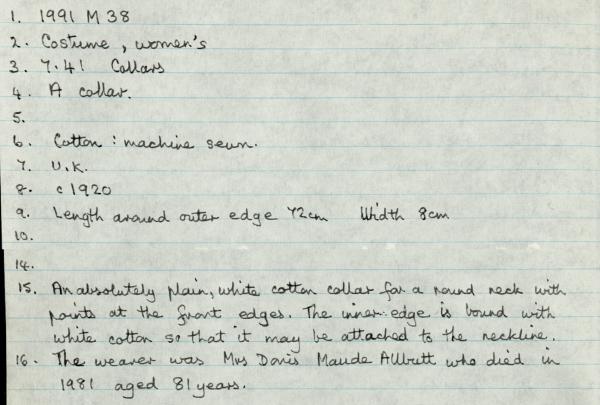 1. 1991 M 38
2. Costume, women's
3. 7.41 Collars
4. A collar.
5.
6. Cotton : machine sewn.
7. U.K.
8. c 1920
9. Length around outer edge 42cm Width 8cm
10.
14.
15. An absolutely plain, white cotton collar for a round neck with
points at the front edges. The inner edge is bound with
white cotton so that it may be attached to the neckline.
16. The wearer was Mrs Doris Maude Allbutt who died in
1981 aged 81 years.